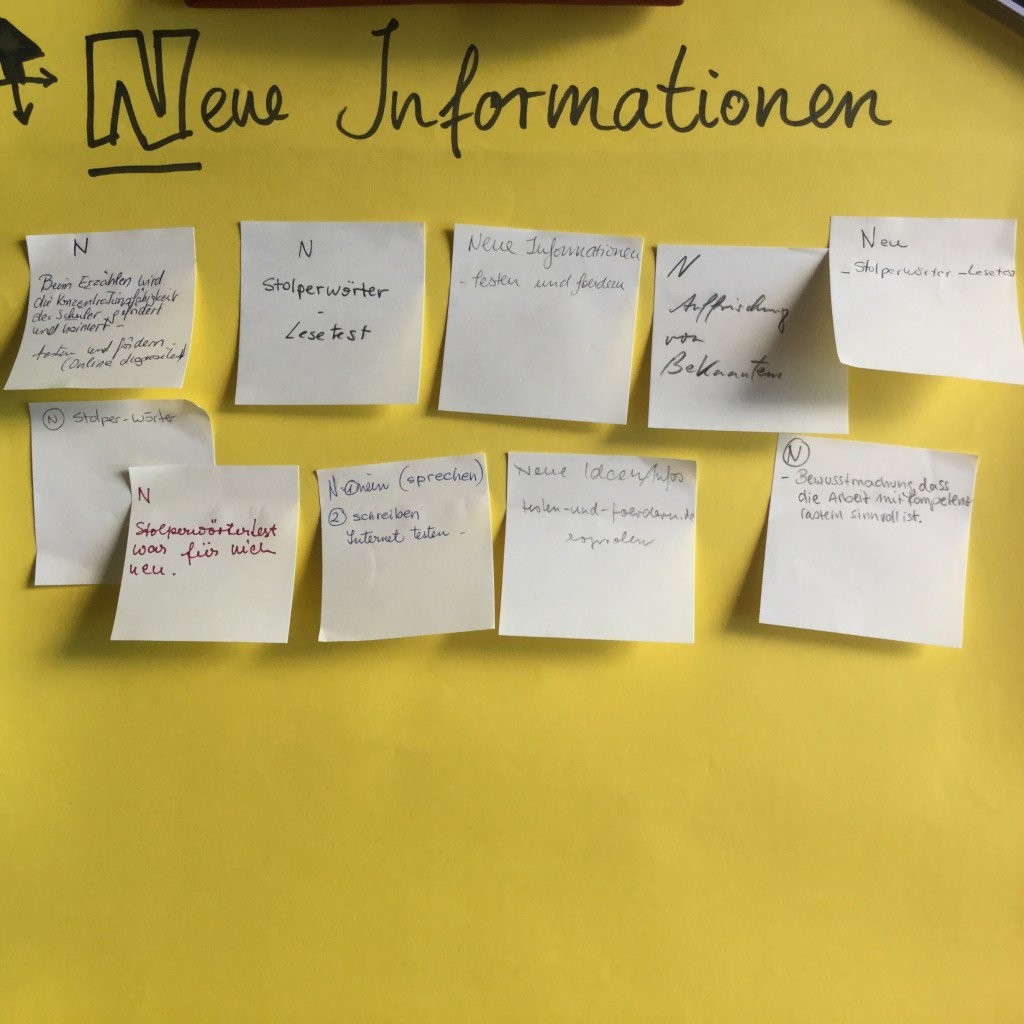 Neue Informationen
N
Beim Erzählen wird
die Konzentrationsfähigkeit
der Schüler gefördert
und trainiert -
testen und fördern -
(Online diagnostik)
N
Stolperwörter
-
Lesetest
Neue Informationen
- testen und foerdern
N
Auffrischung
von
Bekanntem
Neu
- Stolperwörter - Lesetest
N Stolper-Wörter
N
Stolperwörtertest
was für mich
neu.
N - ① nein (sprechen)
② schreiben
Internet testen -
Neue Ideen/Infos
testen-und-foerdern.de
erproben
N
- Bewusstmachung, dass
die Arbeit mit Kompetenz
rastern sinnvoll ist.